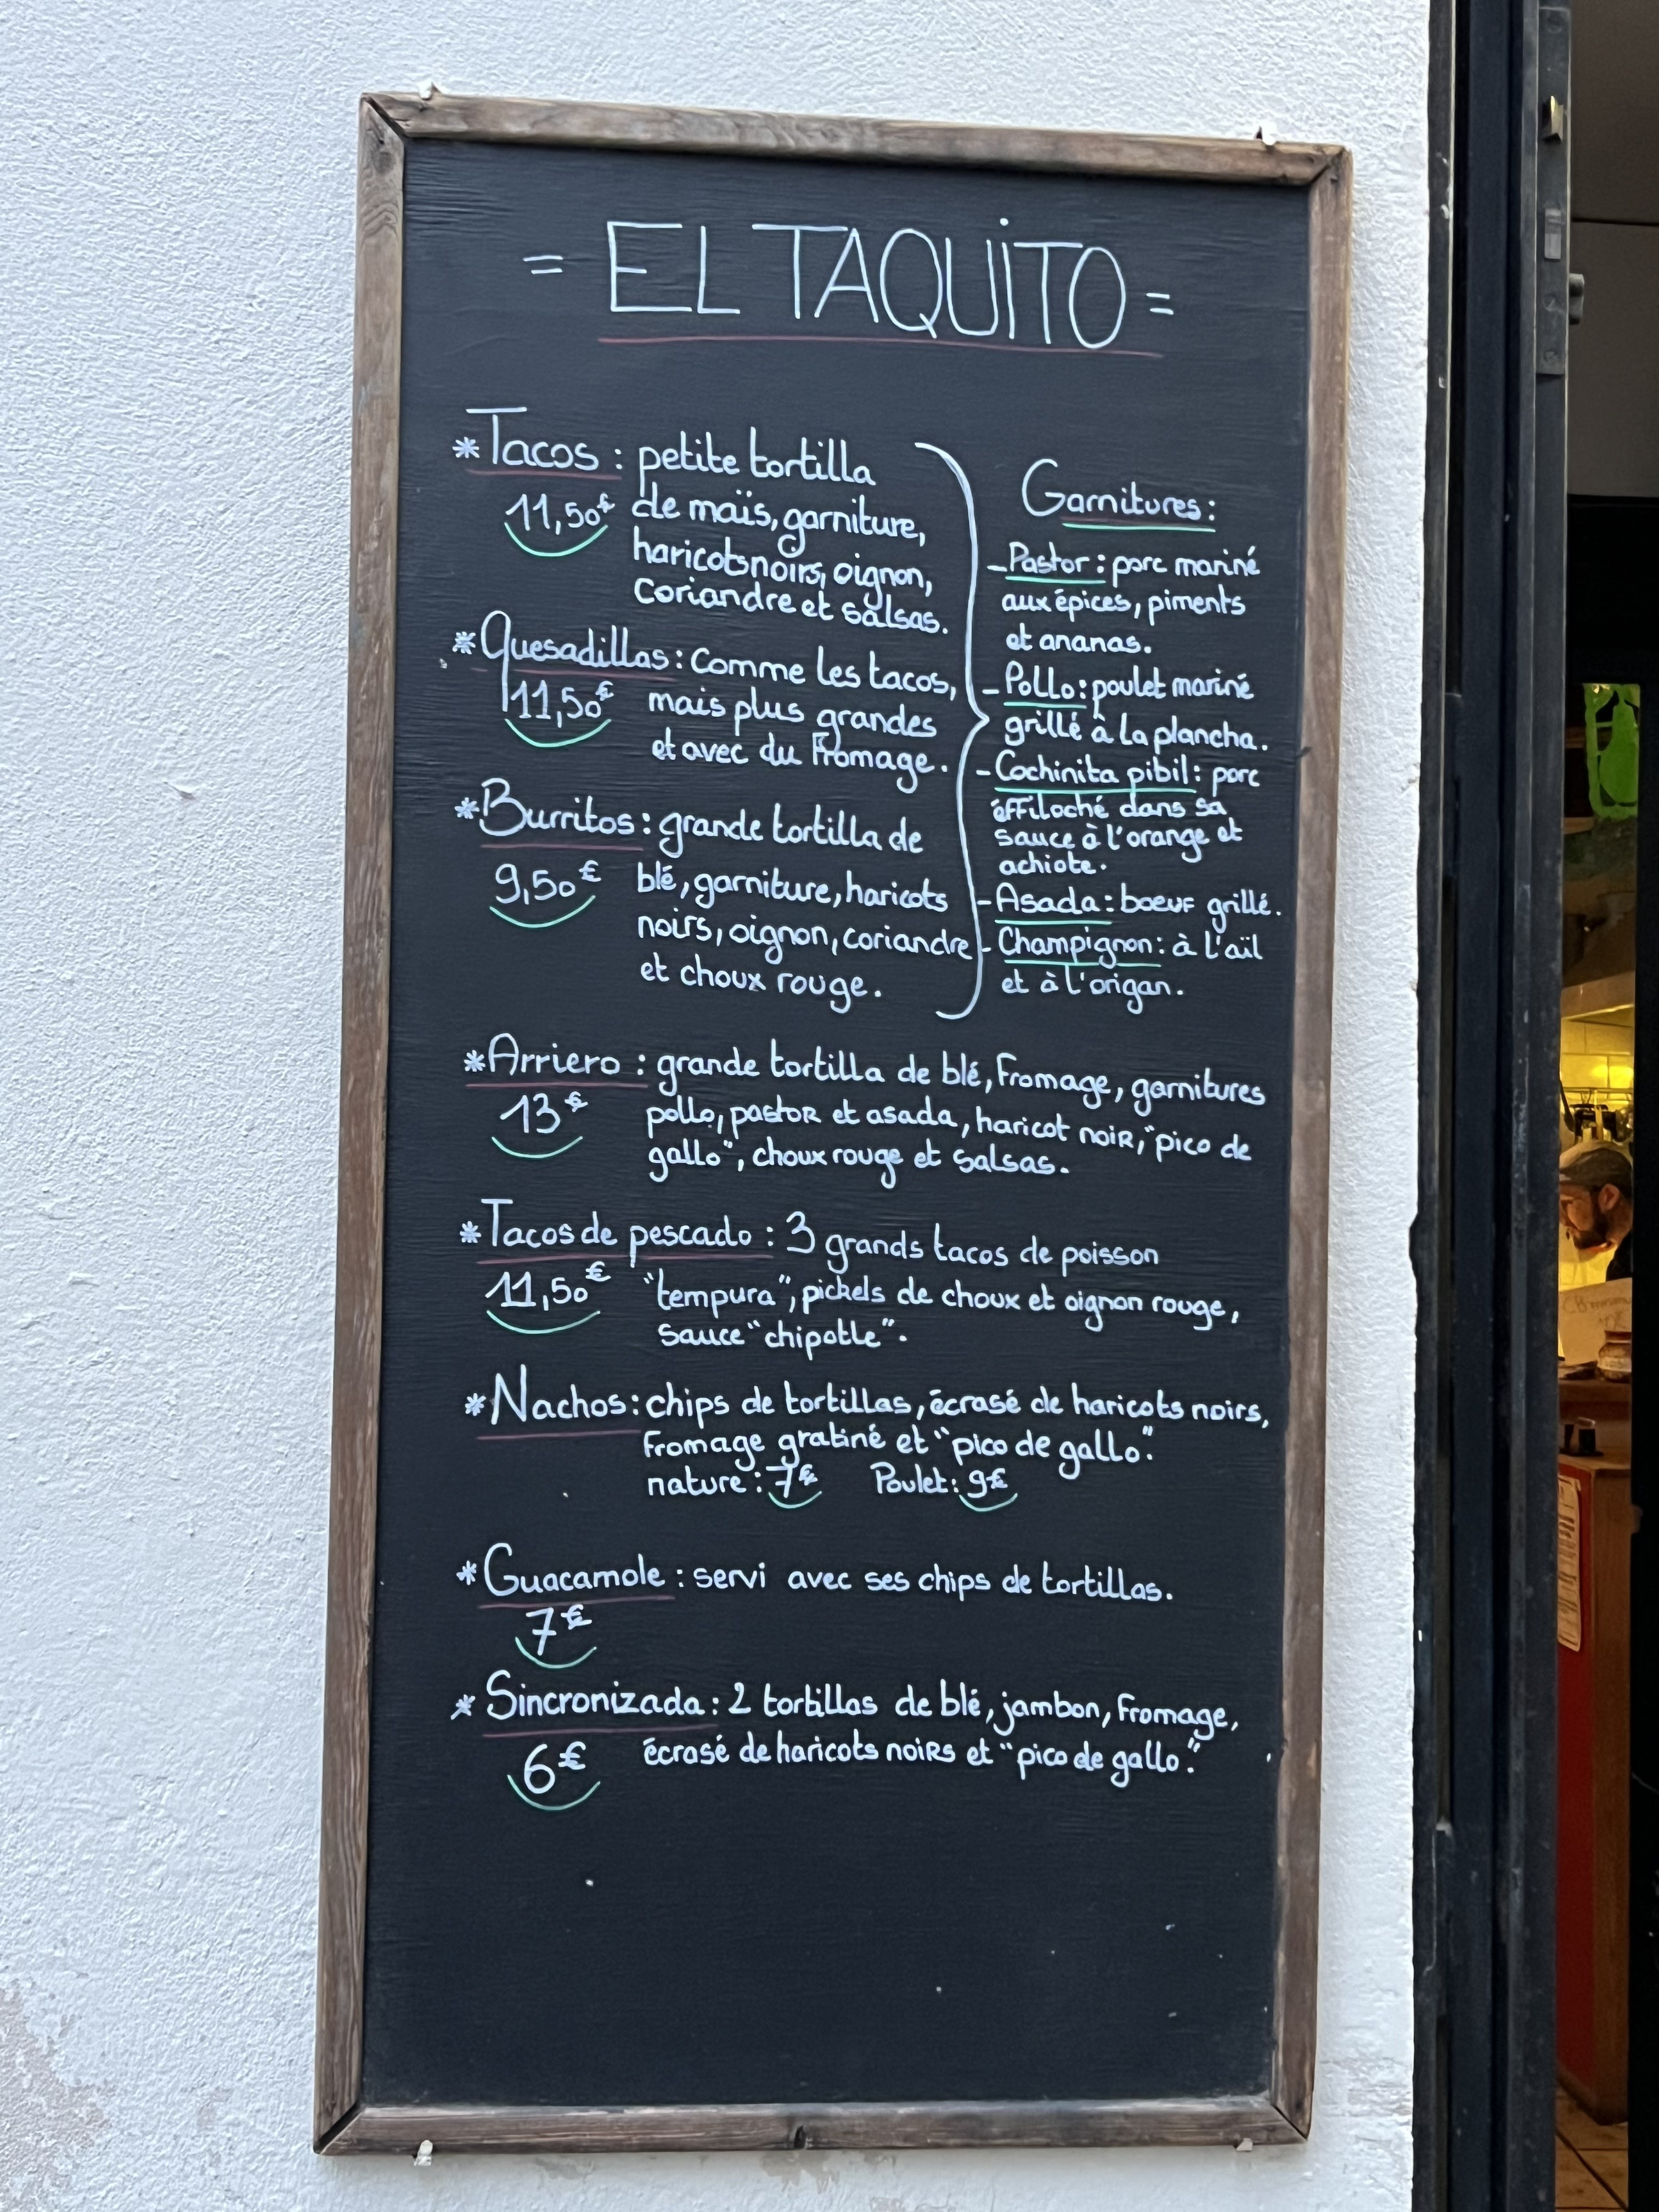 = EL TAQUITO =
*Tacos : petite tortilla
11,50€ de maïs, garniture,
haricots noirs, oignon,
coriandre et salsas.
*Quesadillas : comme les tacos,
11,50€ mais plus grandes
et avec du fromage.
*Burritos : grande tortilla de
9,50€ blé, garniture, haricots
noirs, oignon, coriandre
et choux rouge.
Garnitures :
- Pastor : porc mariné
aux épices, piments
et ananas.
- Pollo : poulet mariné
grillé à la plancha.
- Cochinita pibil : porc
éffiloché dans sa
sauce à l'orange et
achiote.
- Asada : boeuf grillé.
- Champignon : à l'aïl
et à l'origan.
*Arriero : grande tortilla de blé, fromage, garnitures
13€ pollo, pastor et asada, haricot noir, "pico de
gallo", choux rouge et salsas.
*Tacos de pescado : 3 grands tacos de poisson
11,50€ "tempura", pickels de choux et oignon rouge,
sauce "chipotle".
*Nachos : chips de tortillas, écrasé de haricots noirs,
fromage gratiné et "pico de gallo".
nature : 7€ Poulet : 9€
*Guacamole : servi avec ses chips de tortillas.
7€
*Sincronizada : 2 tortillas de blé, jambon, fromage,
6€ écrasé de haricots noirs et "pico de gallo".